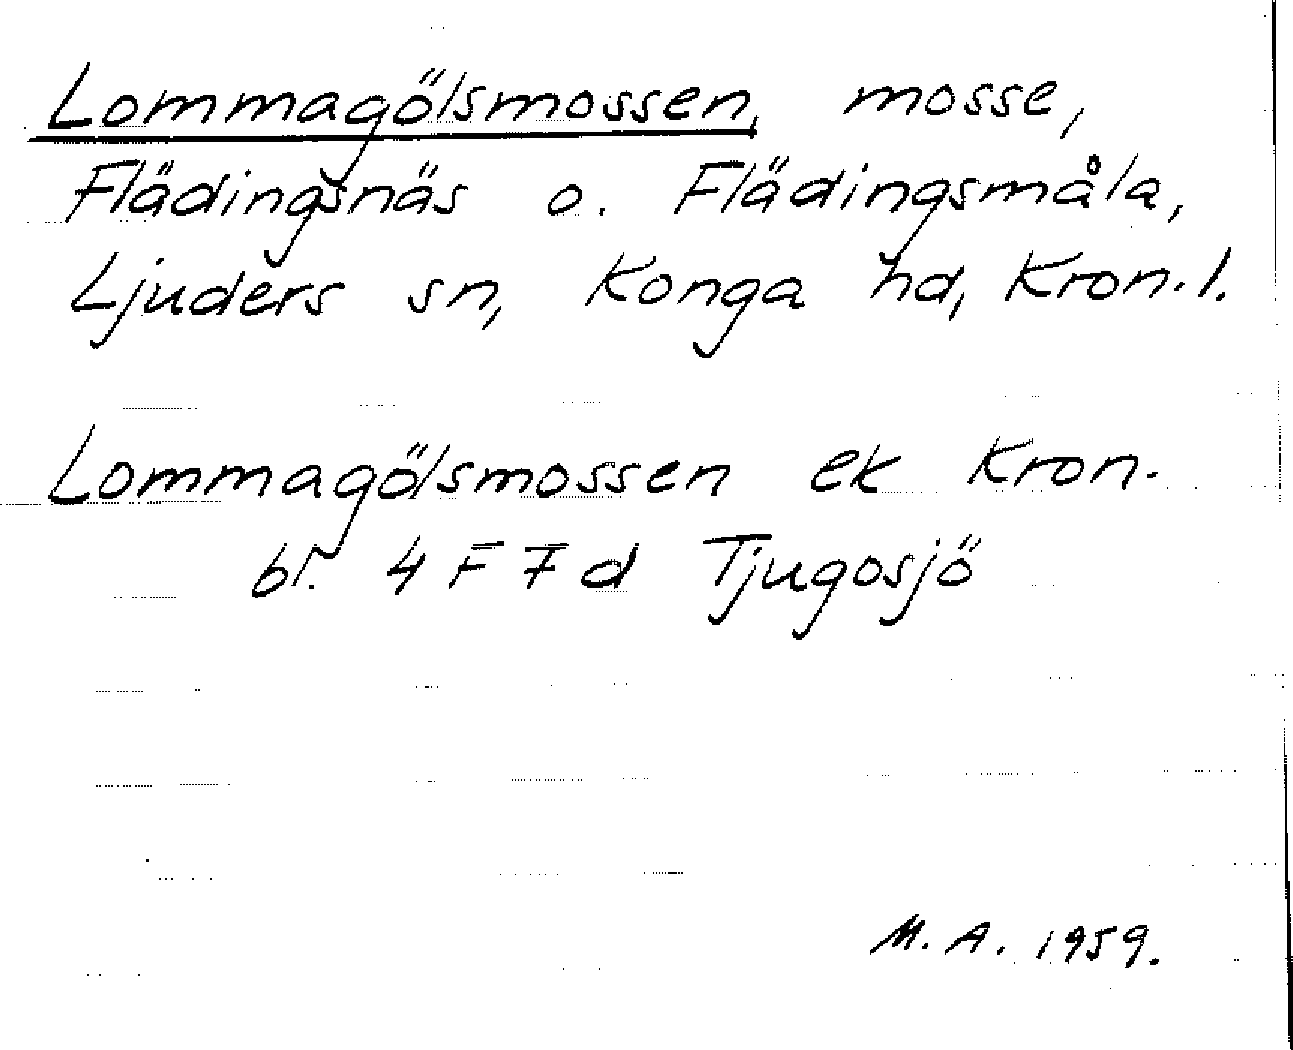 Lommagölsmossen, mosse,
Flädingsnäs o. Flädingsmåla,
Ljuders sn, Konga hd, Kron. l.
Lommagölsmossen ek Kron.
bl. 4 F 7 d Tjugosjö
M. A. 1959.